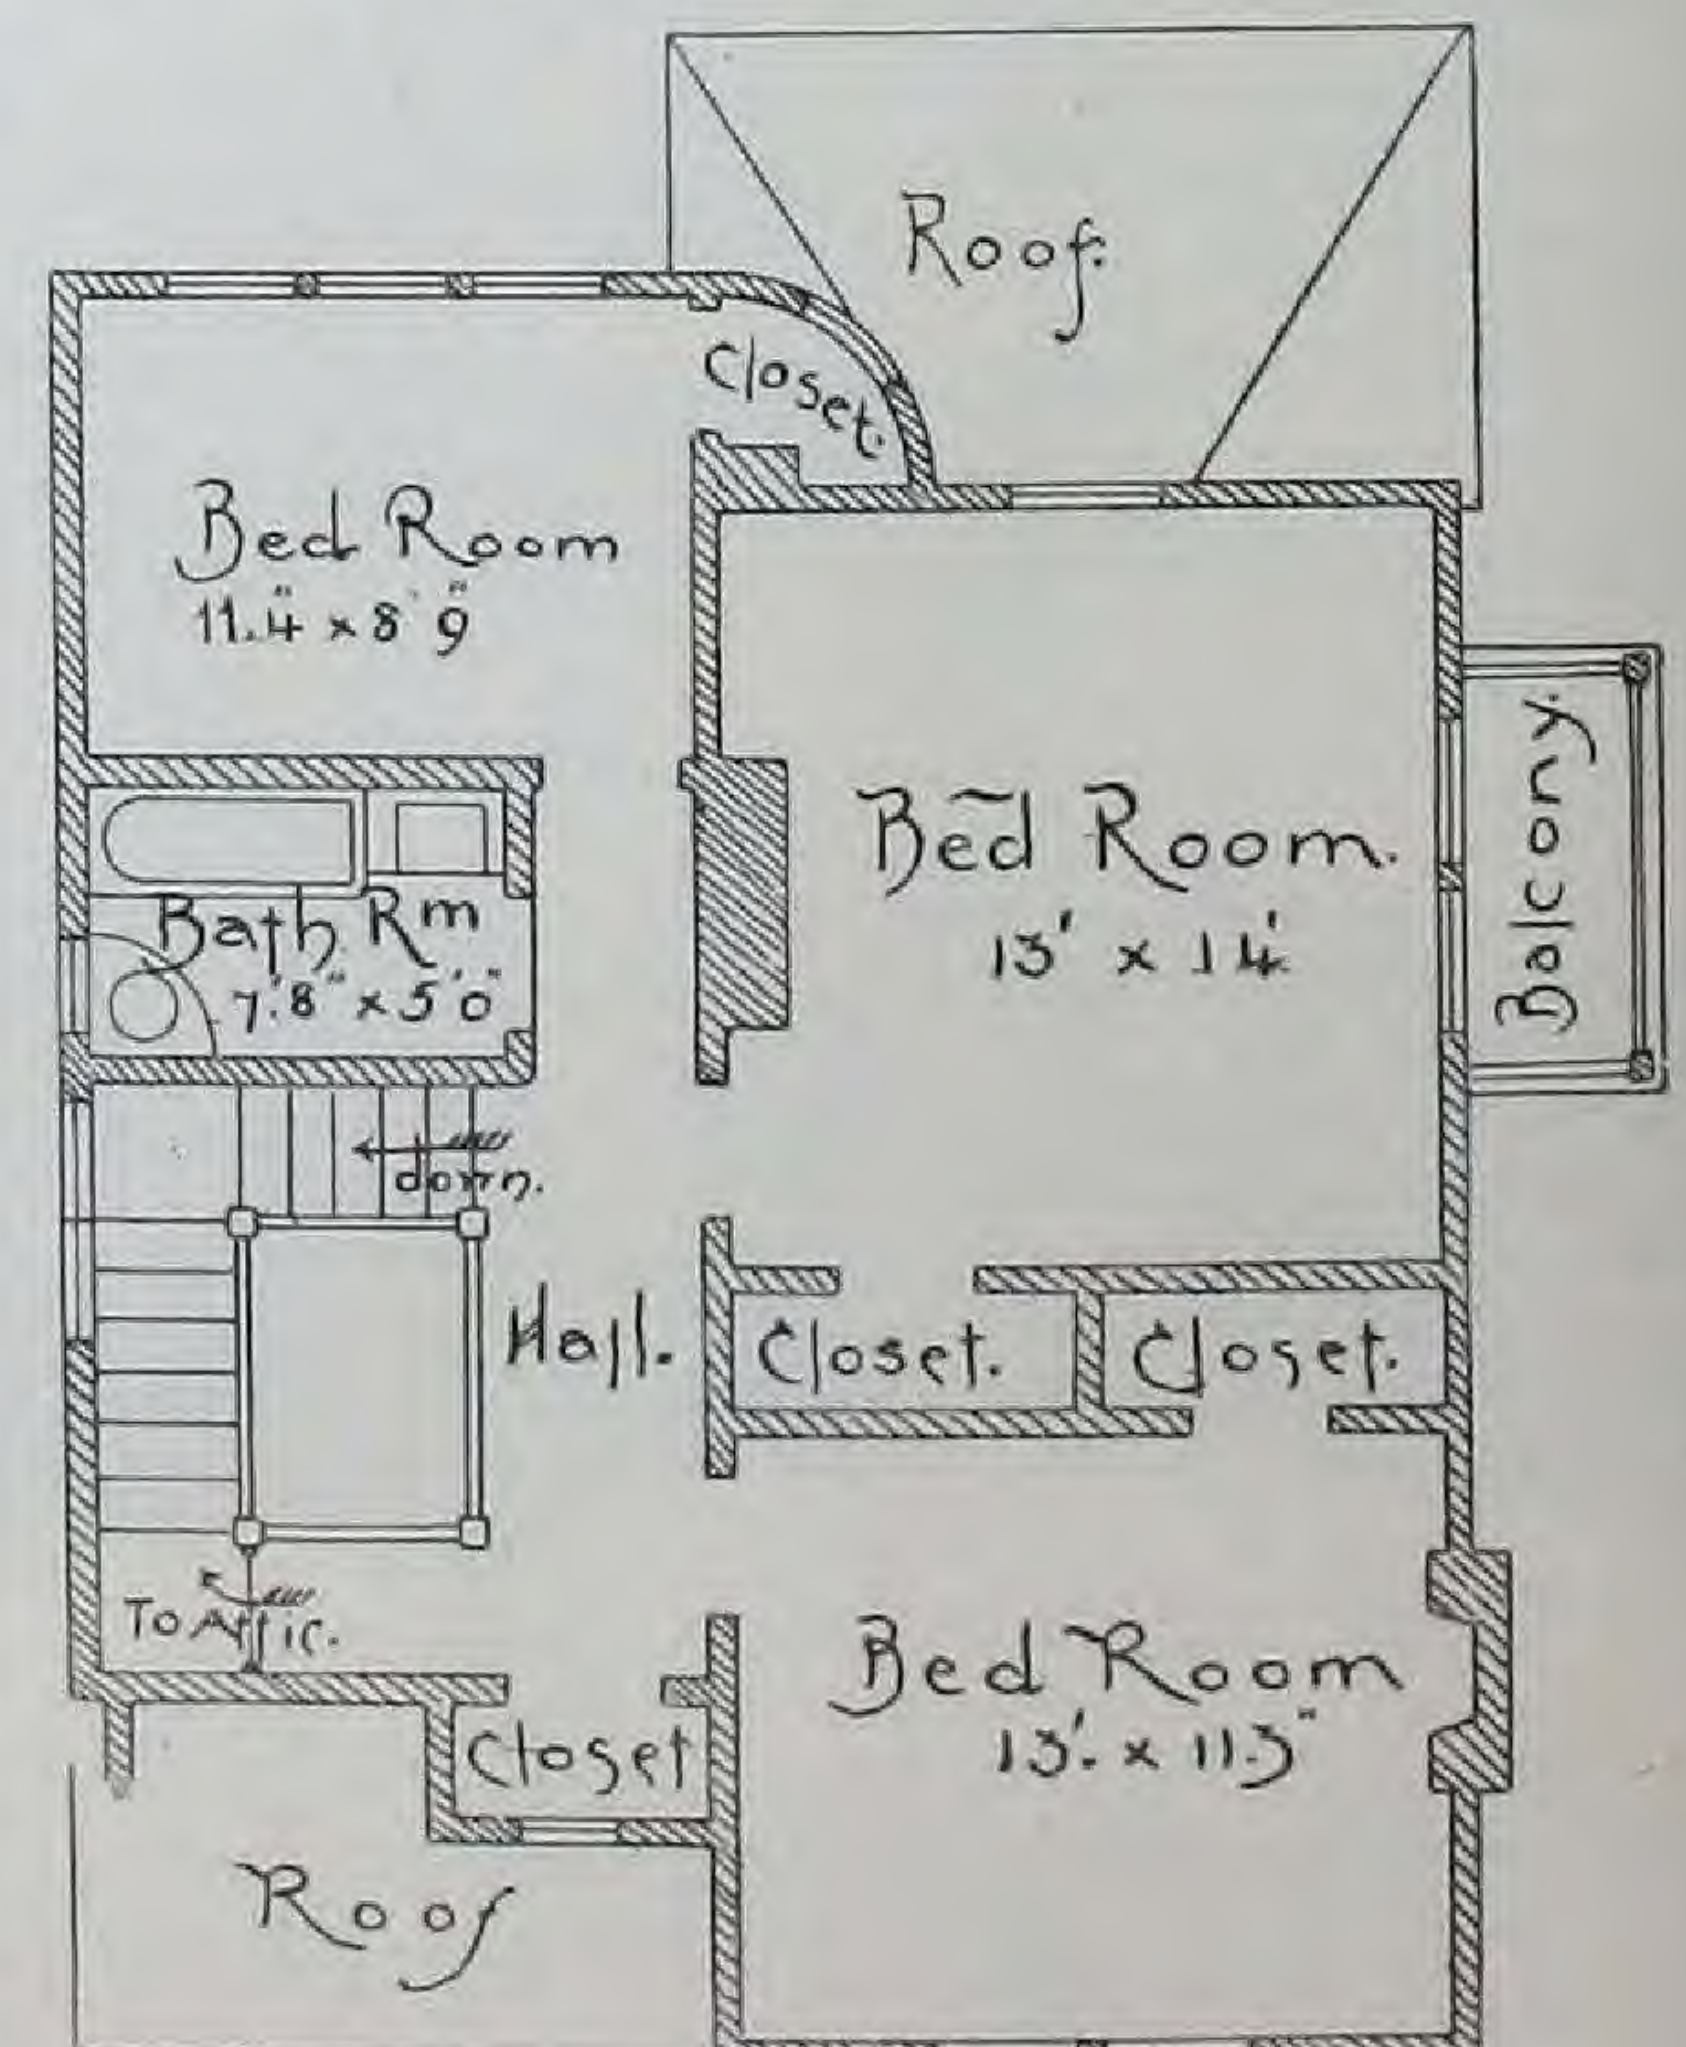 Roof.
Closet.
Bed Room
11.4" x 8' 9"
Bed Room.
13' x 14'
Balcony.
Bath Rm
7'.8" x 5'0"
down.
Hall.
Closet.
Closet.
To Attic.
Bed Room
13'. x 11.3"
Closet
Roof